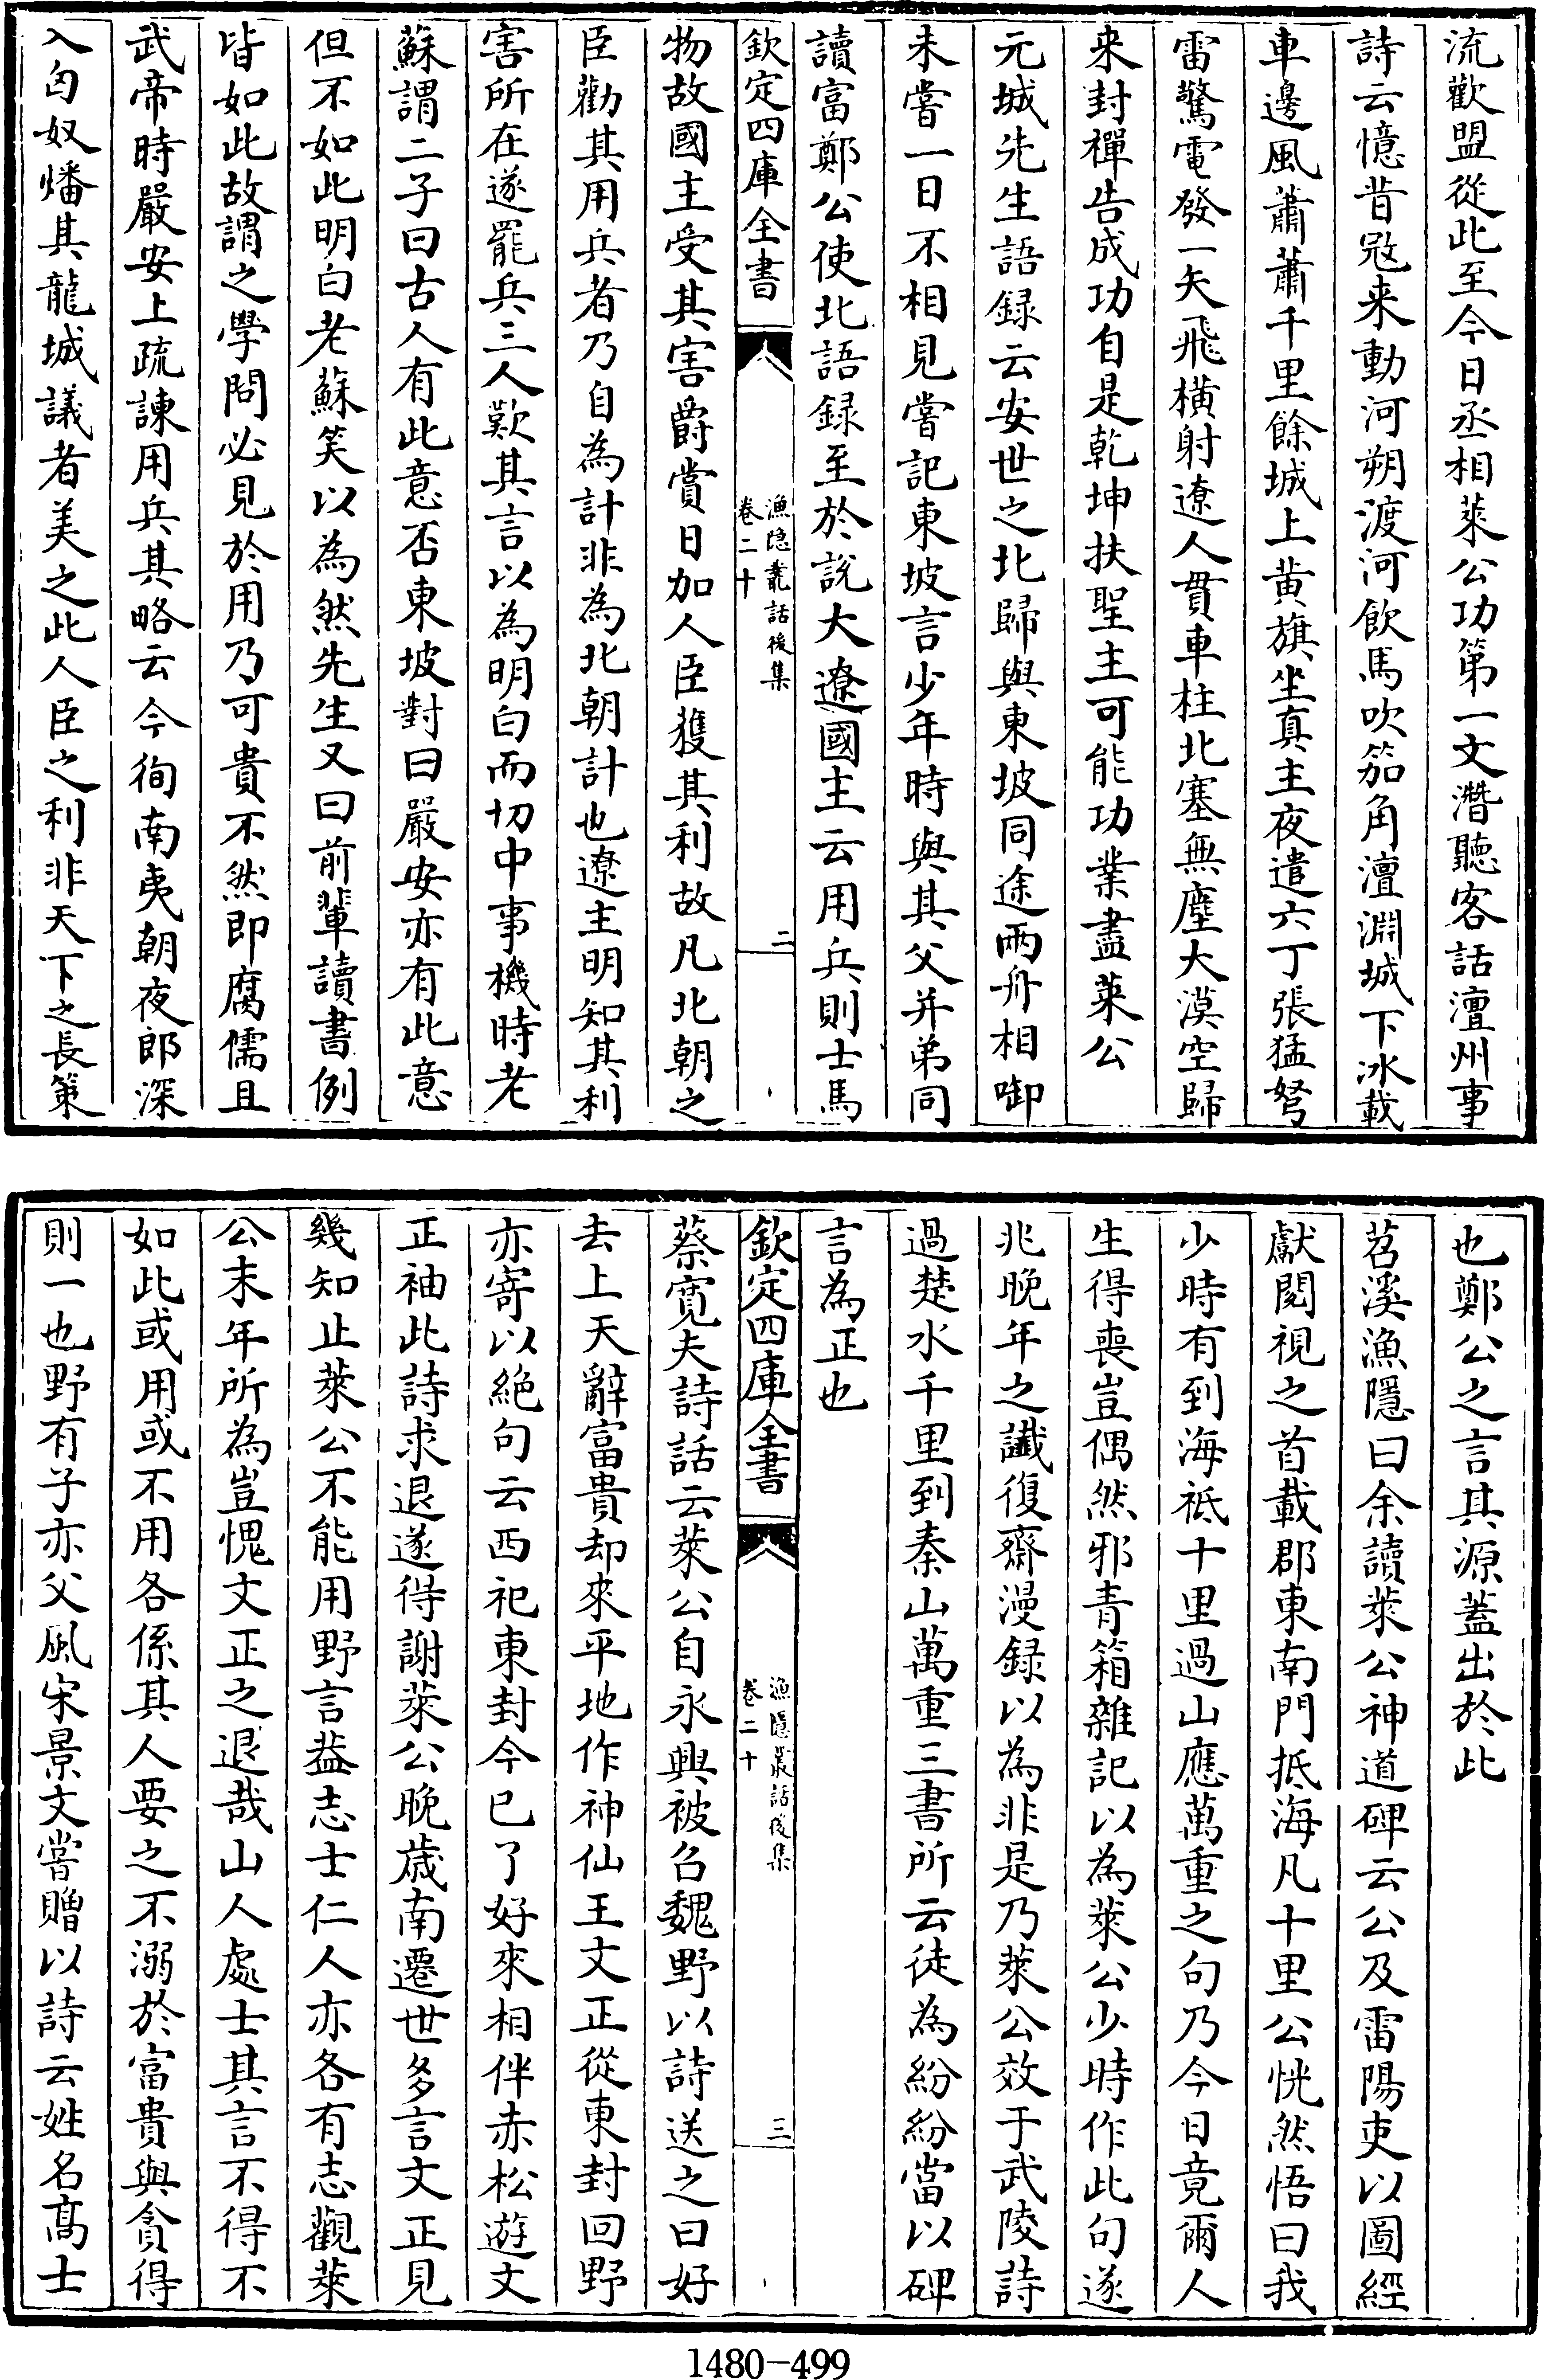 流歡盟從此至今日丞相萊公功第一文濳聽客話澶州事
詩云憶昔冦来動河朔渡河飲馬吹笳角澶淵城下冰載
車邊風蕭蕭千里餘城上黄旗坐真主夜遣六丁張猛弩
雷驚電發一矢飛横射遼人貫車柱北塞無塵大漠空歸
来封禪告成功自是乾坤扶聖主可能功業盡萊公
元城先生語録云安世之北歸與東坡同途兩舟相啣
未嘗一日不相見嘗記東坡言少年時與其父并弟同
讀富鄭公使北語録至於説大遼國主云用兵則士馬
欽定四庫全書
漁隐叢話後集
卷二十
二
物故國主受其害爵賞日加人臣獲其利故凡北朝之
臣勸其用兵者乃自為計非為北朝計也遼主明知其利
害所在遂罷兵三人歎其言以為明白而切中事機時老
蘇謂二子曰古人有此意否東坡對曰嚴安亦有此意
但不如此明白老蘇笑以為然先生又曰前輩讀書例
皆如此故謂之學問必見於用乃可貴不然即腐儒且
武帝時嚴安上疏諫用兵其略云今徇南夷朝夜郎深
入匈奴燔其龍城議者美之此人臣之利非天下之長策
也鄭公之言其源蓋出於此
苕溪漁隱曰余讀萊公神道碑云公及雷陽吏以圖經
獻閲視之首載郡東南門抵海凡十里公恍然悟曰我
少時有到海祗十里過山應萬重之句乃今日竟爾人
生得喪豈偶然邪青箱雜記以為萊公少時作此句遂
兆晚年之讖復齋漫録以為非是乃萊公效于武陵詩
過楚水千里到秦山萬重三書所云徒為紛紛當以碑
言為正也
欽定四庫全書
漁隱叢話後集
卷二十
三
蔡寛夫詩話云萊公自永興被召魏野以詩送之曰好
去上天辭富貴却來平地作神仙王文正從東封回野
亦寄以絶句云西祀東封今已了好來相伴赤松遊文
正袖此詩求退遂得謝萊公晚歳南遷世多言文正見
幾知止萊公不能用野言葢志士仁人亦各有志觀萊
公末年所為豈愧文正之退哉山人處士其言不得不
如此或用或不用各係其人要之不溺於富貴與貪得
則一也野有子亦父風宋景文嘗贈以詩云姓名髙士
1480-499